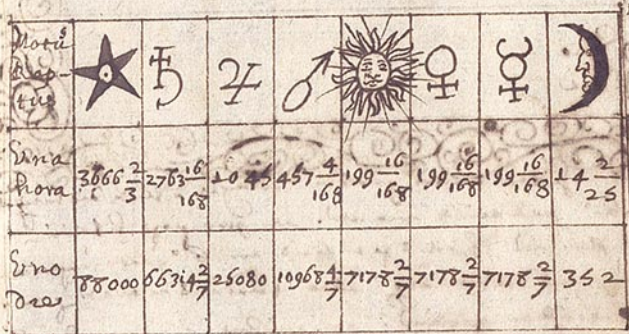 Motus
Rap-
tus
♄ ♃ ♂ ☉ ♀ ☿ ☾
Una hora 3666 2/3 2763 16/168 1045 457 4/168 199 16/168 199 16/168 199 16/168 14 2/25
Uno Die 88000 66314 2/7 25080 10968 4/7 7178 2/7 7178 2/7 7178 2/7 352